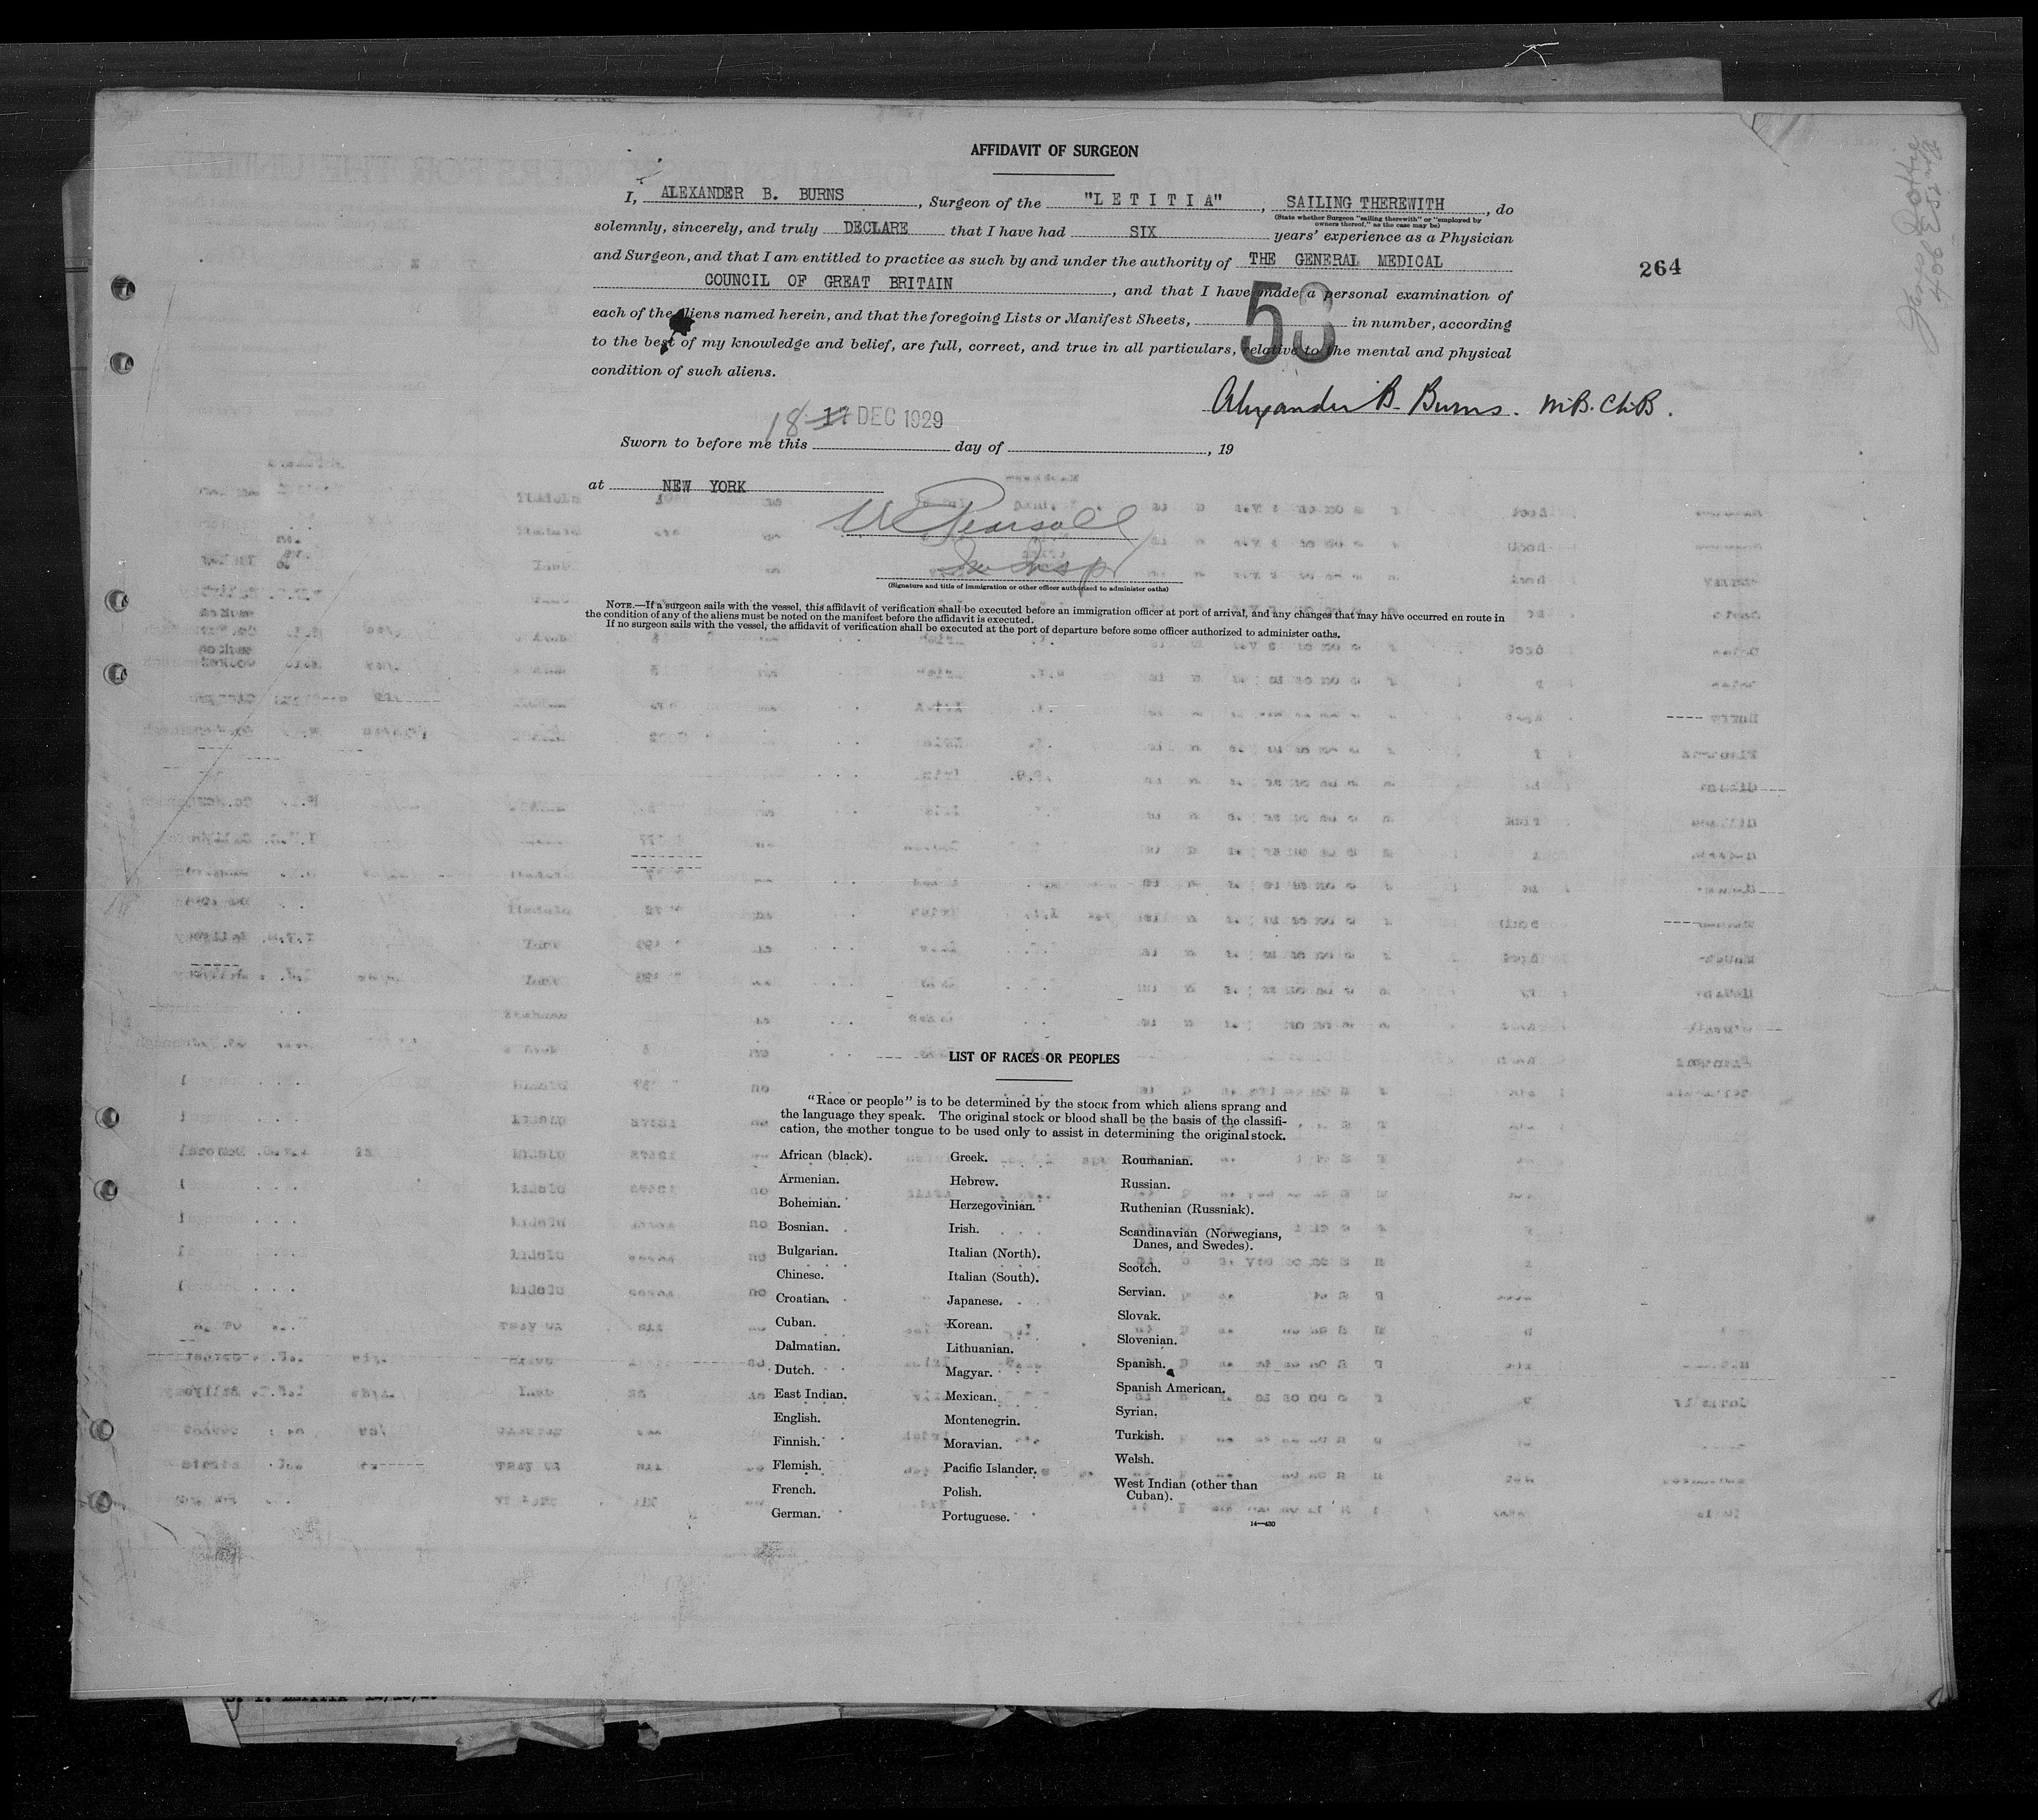 AFFIDAVIT OF SURGEON
I, ALEXANDER B. BURNS, Surgeon of the "LETITIA", SAILING THEREWITH, do
(State whether Surgeon "sailing therewith" or "employed by
owners thereof," as the case may be)
solemnly, sincerely, and truly DECLARE that I have had SIX years' experience as a Physician
and Surgeon, and that I am entitled to practice as such by and under the authority of THE GENERAL MEDICAL
264
COUNCIL OF GREAT BRITAIN, and that I have made a personal examination of
each of the aliens named herein, and that the foregoing Lists or Manifest Sheets, in number, according
to the best of my knowledge and belief, are full, correct, and true in all particulars, relative to the mental and physical
condition of such aliens.
Alexander B. Burns. M.B. Ch.B.
18 17 DEC 1929
Sworn to before me this day of , 19
at NEW YORK
Pearsall
Im Insp
(Signature and title of immigration or other officer authorized to administer oaths)
NOTE.—If a surgeon sails with the vessel, this affidavit of verification shall be executed before an immigration officer at port of arrival, and any changes that may have occurred en route in
the condition of any of the aliens must be noted on the manifest before the affidavit is executed.
If no surgeon sails with the vessel, the affidavit of verification shall be executed at the port of departure before some officer authorized to administer oaths.
LIST OF RACES OR PEOPLES
"Race or people" is to be determined by the stock from which aliens sprang and
the language they speak. The original stock or blood shall be the basis of the classifi-
cation, the mother tongue to be used only to assist in determining the original stock.
African (black).
Armenian.
Bohemian.
Bosnian.
Bulgarian.
Chinese.
Croatian.
Cuban.
Dalmatian.
Dutch.
East Indian.
English.
Finnish.
Flemish.
French.
German.
Greek.
Hebrew.
Herzegovinian.
Irish.
Italian (North).
Italian (South).
Japanese.
Korean.
Lithuanian.
Magyar.
Mexican.
Montenegrin.
Moravian.
Pacific Islander.
Polish.
Portuguese.
Roumanian.
Russian.
Ruthenian (Russniak).
Scandinavian (Norwegians,
Danes, and Swedes).
Scotch.
Servian.
Slovak.
Slovenian.
Spanish.
Spanish American.
Syrian.
Turkish.
Welsh.
West Indian (other than
Cuban).
14—430